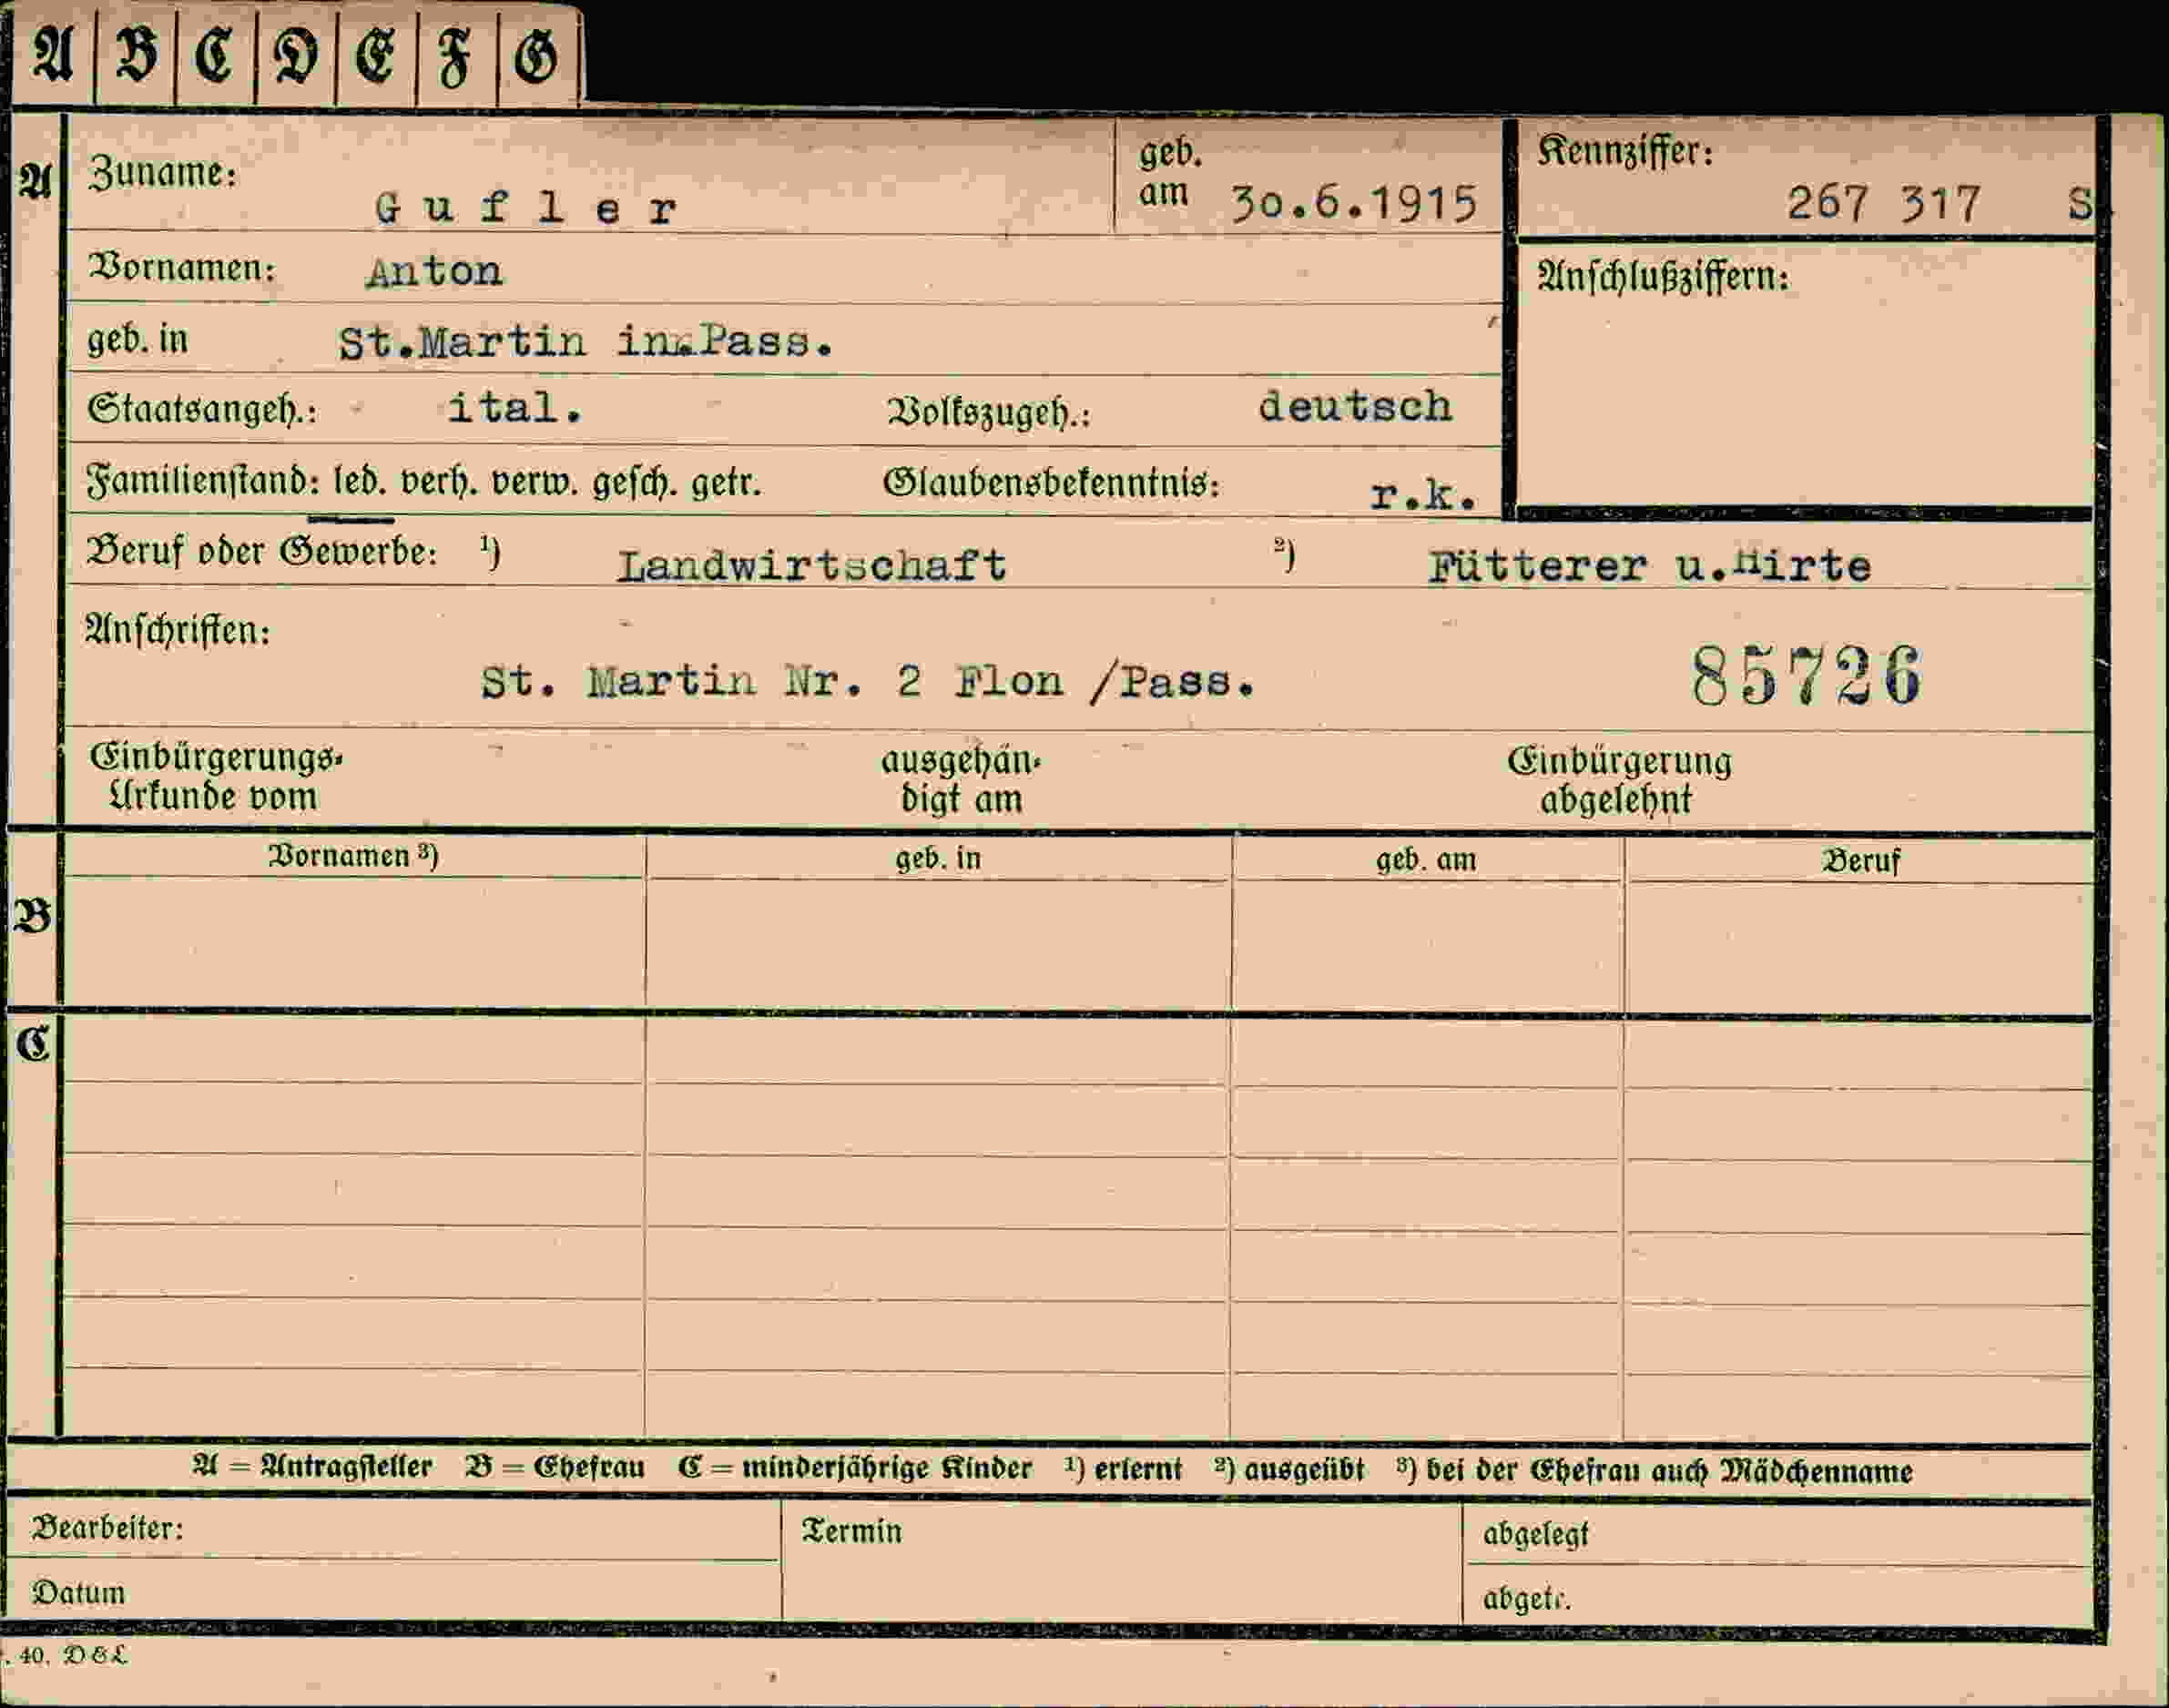 A B C D E F G
A Zuname: Gufler geb. am 30.6.1915 Kennziffer: 267 317 S
Vornamen: Anton Anschlußziffern:
geb. in St.Martin in.Pass.
Staatsangeh.: ital. Volkszugeh.: deutsch
Familienstand: led. verh. verw. gesch. getr. Glaubensbekenntnis: r.k.
Beruf oder Gewerbe: ¹) Landwirtschaft ²) Fütterer u.Hirte
Anschriften:
St. Martin Nr. 2 Flon /Pass. 85726
Einbürgerungs- ausgehän- Einbürgerung
Urkunde vom digt am abgelehnt
Vornamen ³) geb. in geb. am Beruf
B
C
A = Antragsteller B = Ehefrau C = minderjährige Kinder ¹) erlernt ²) ausgeübt ³) bei der Ehefrau auch Mädchenname
Bearbeiter: Termin abgelegt
Datum abgetr.
. 40. D&L